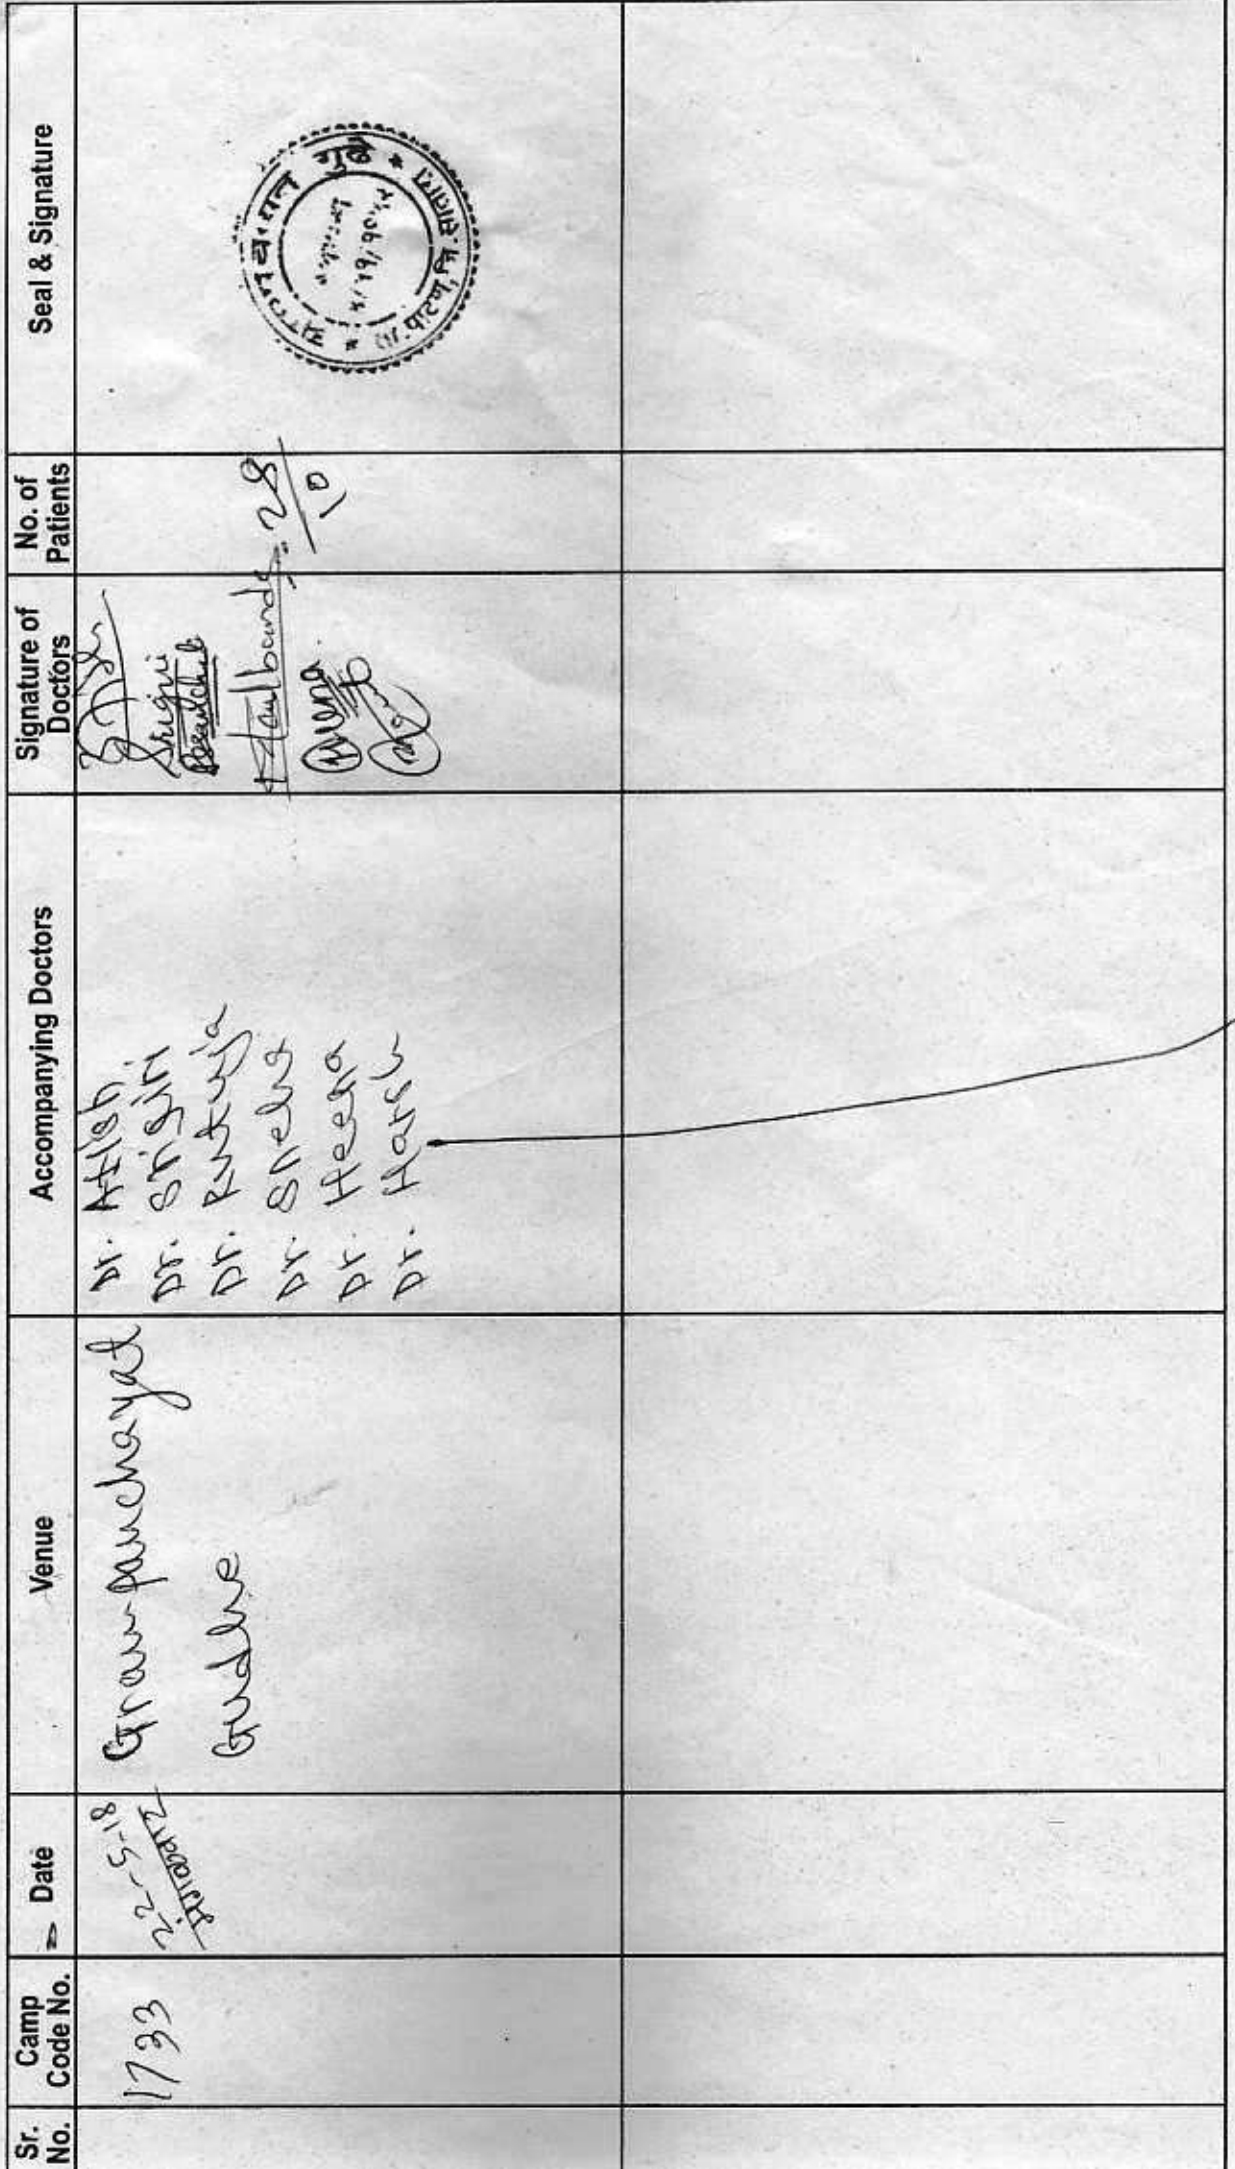 Sr. No.
Camp Code No.
Date
Venue
Accompanying Doctors
Signature of Doctors
No. of Patients
Seal & Signature
1733
22-5-18
मंगळवार
Grampanchayat
Gudhe
Dr. Atish
Dr. Srigiri
Dr. Rutuja
Dr. Sneha
Dr. Heena
Dr. Harsh
Srigiri
Heena
28
10
गुढे
ता. पाटण, जि. सातारा